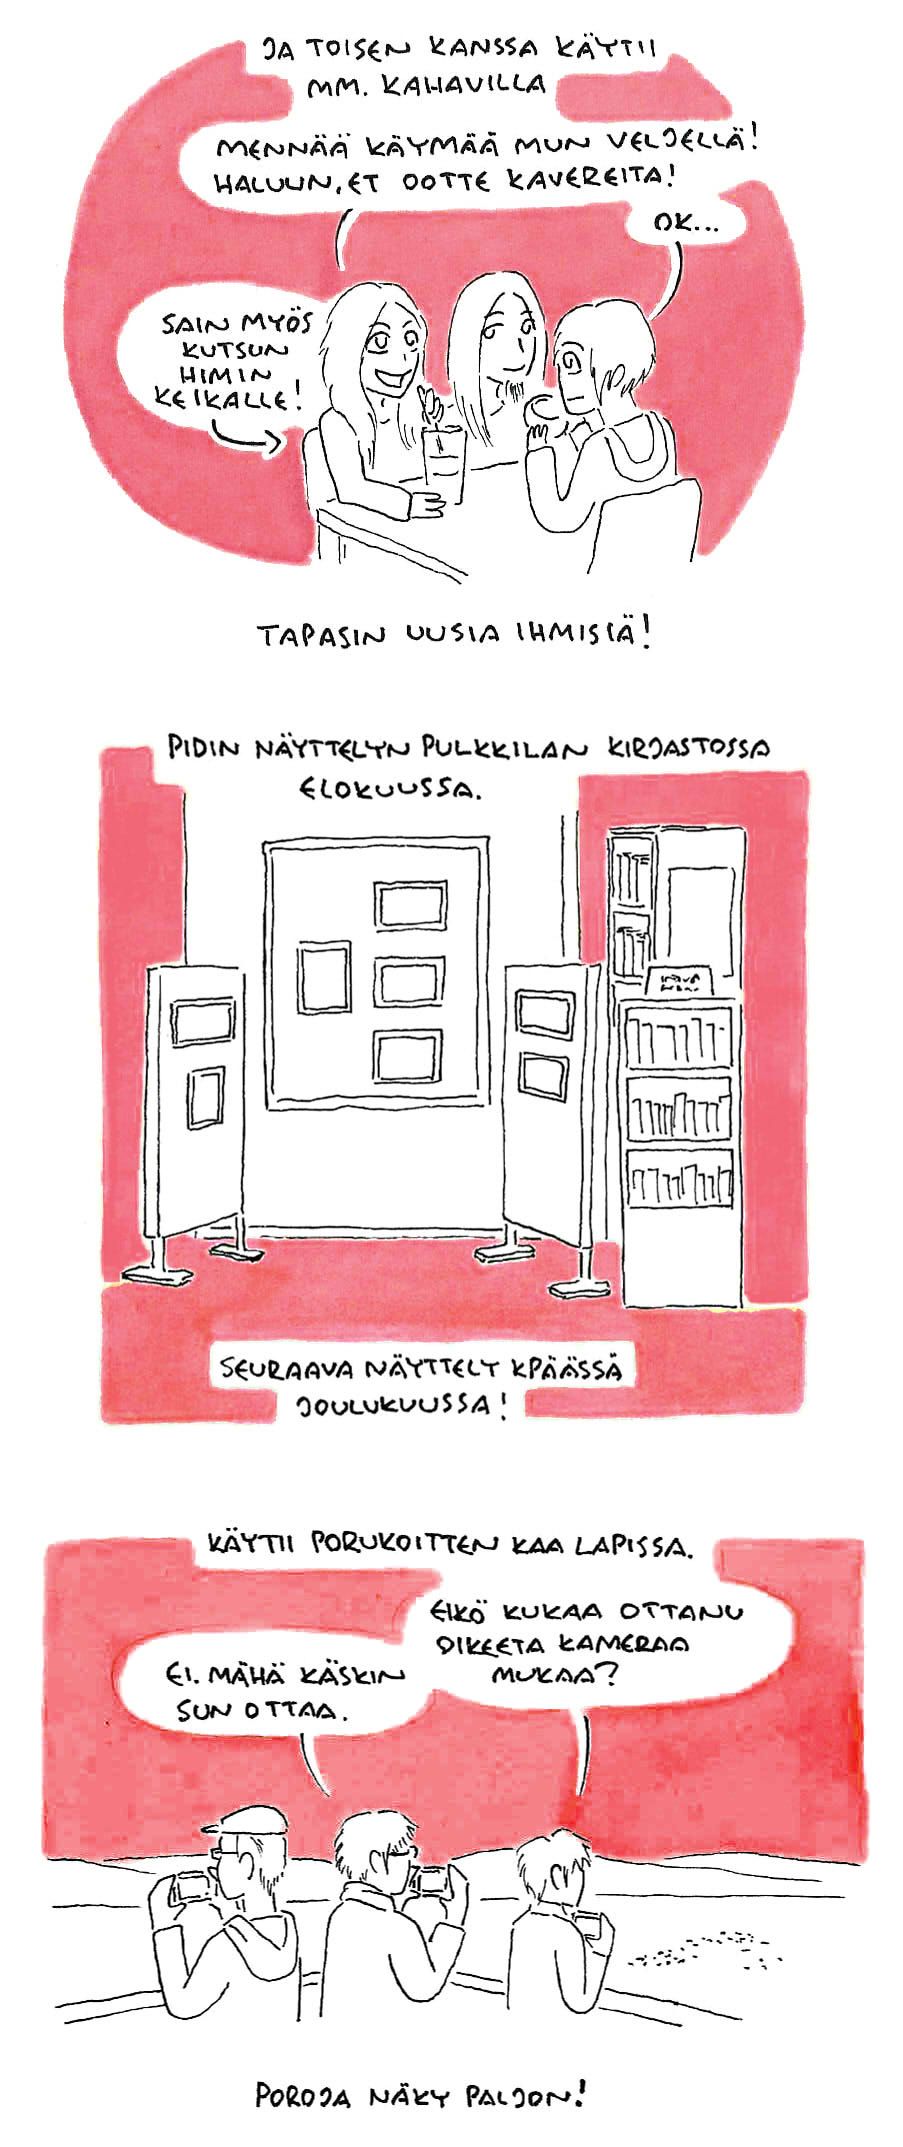 JA TOISEN KANSSA KÄYTII
MM. KAHAVILLA
MENNÄÄ KÄYMÄÄ MUN VELJELLÄ!
HALUUN, ET OOTTE KAVEREITA!
OK...
SAIN MYÖS
KUTSUN
HIMIN
KEIKALLE!
TAPASIN UUSIA IHMISIÄ!
PIDIN NÄYTTELYN PULKKILAN KIRJASTOSSA
ELOKUUSSA.
SEURAAVA NÄYTTELY KPÄÄSSÄ
JOULUKUUSSA!
KÄYTII PORUKOITTEN KAA LAPISSA.
EIKÖ KUKAA OTTANU
OIKEETA KAMERAA
MUKAA?
EI. MÄHÄ KÄSKIN
SUN OTTAA.
POROJA NÄKY PALJON!